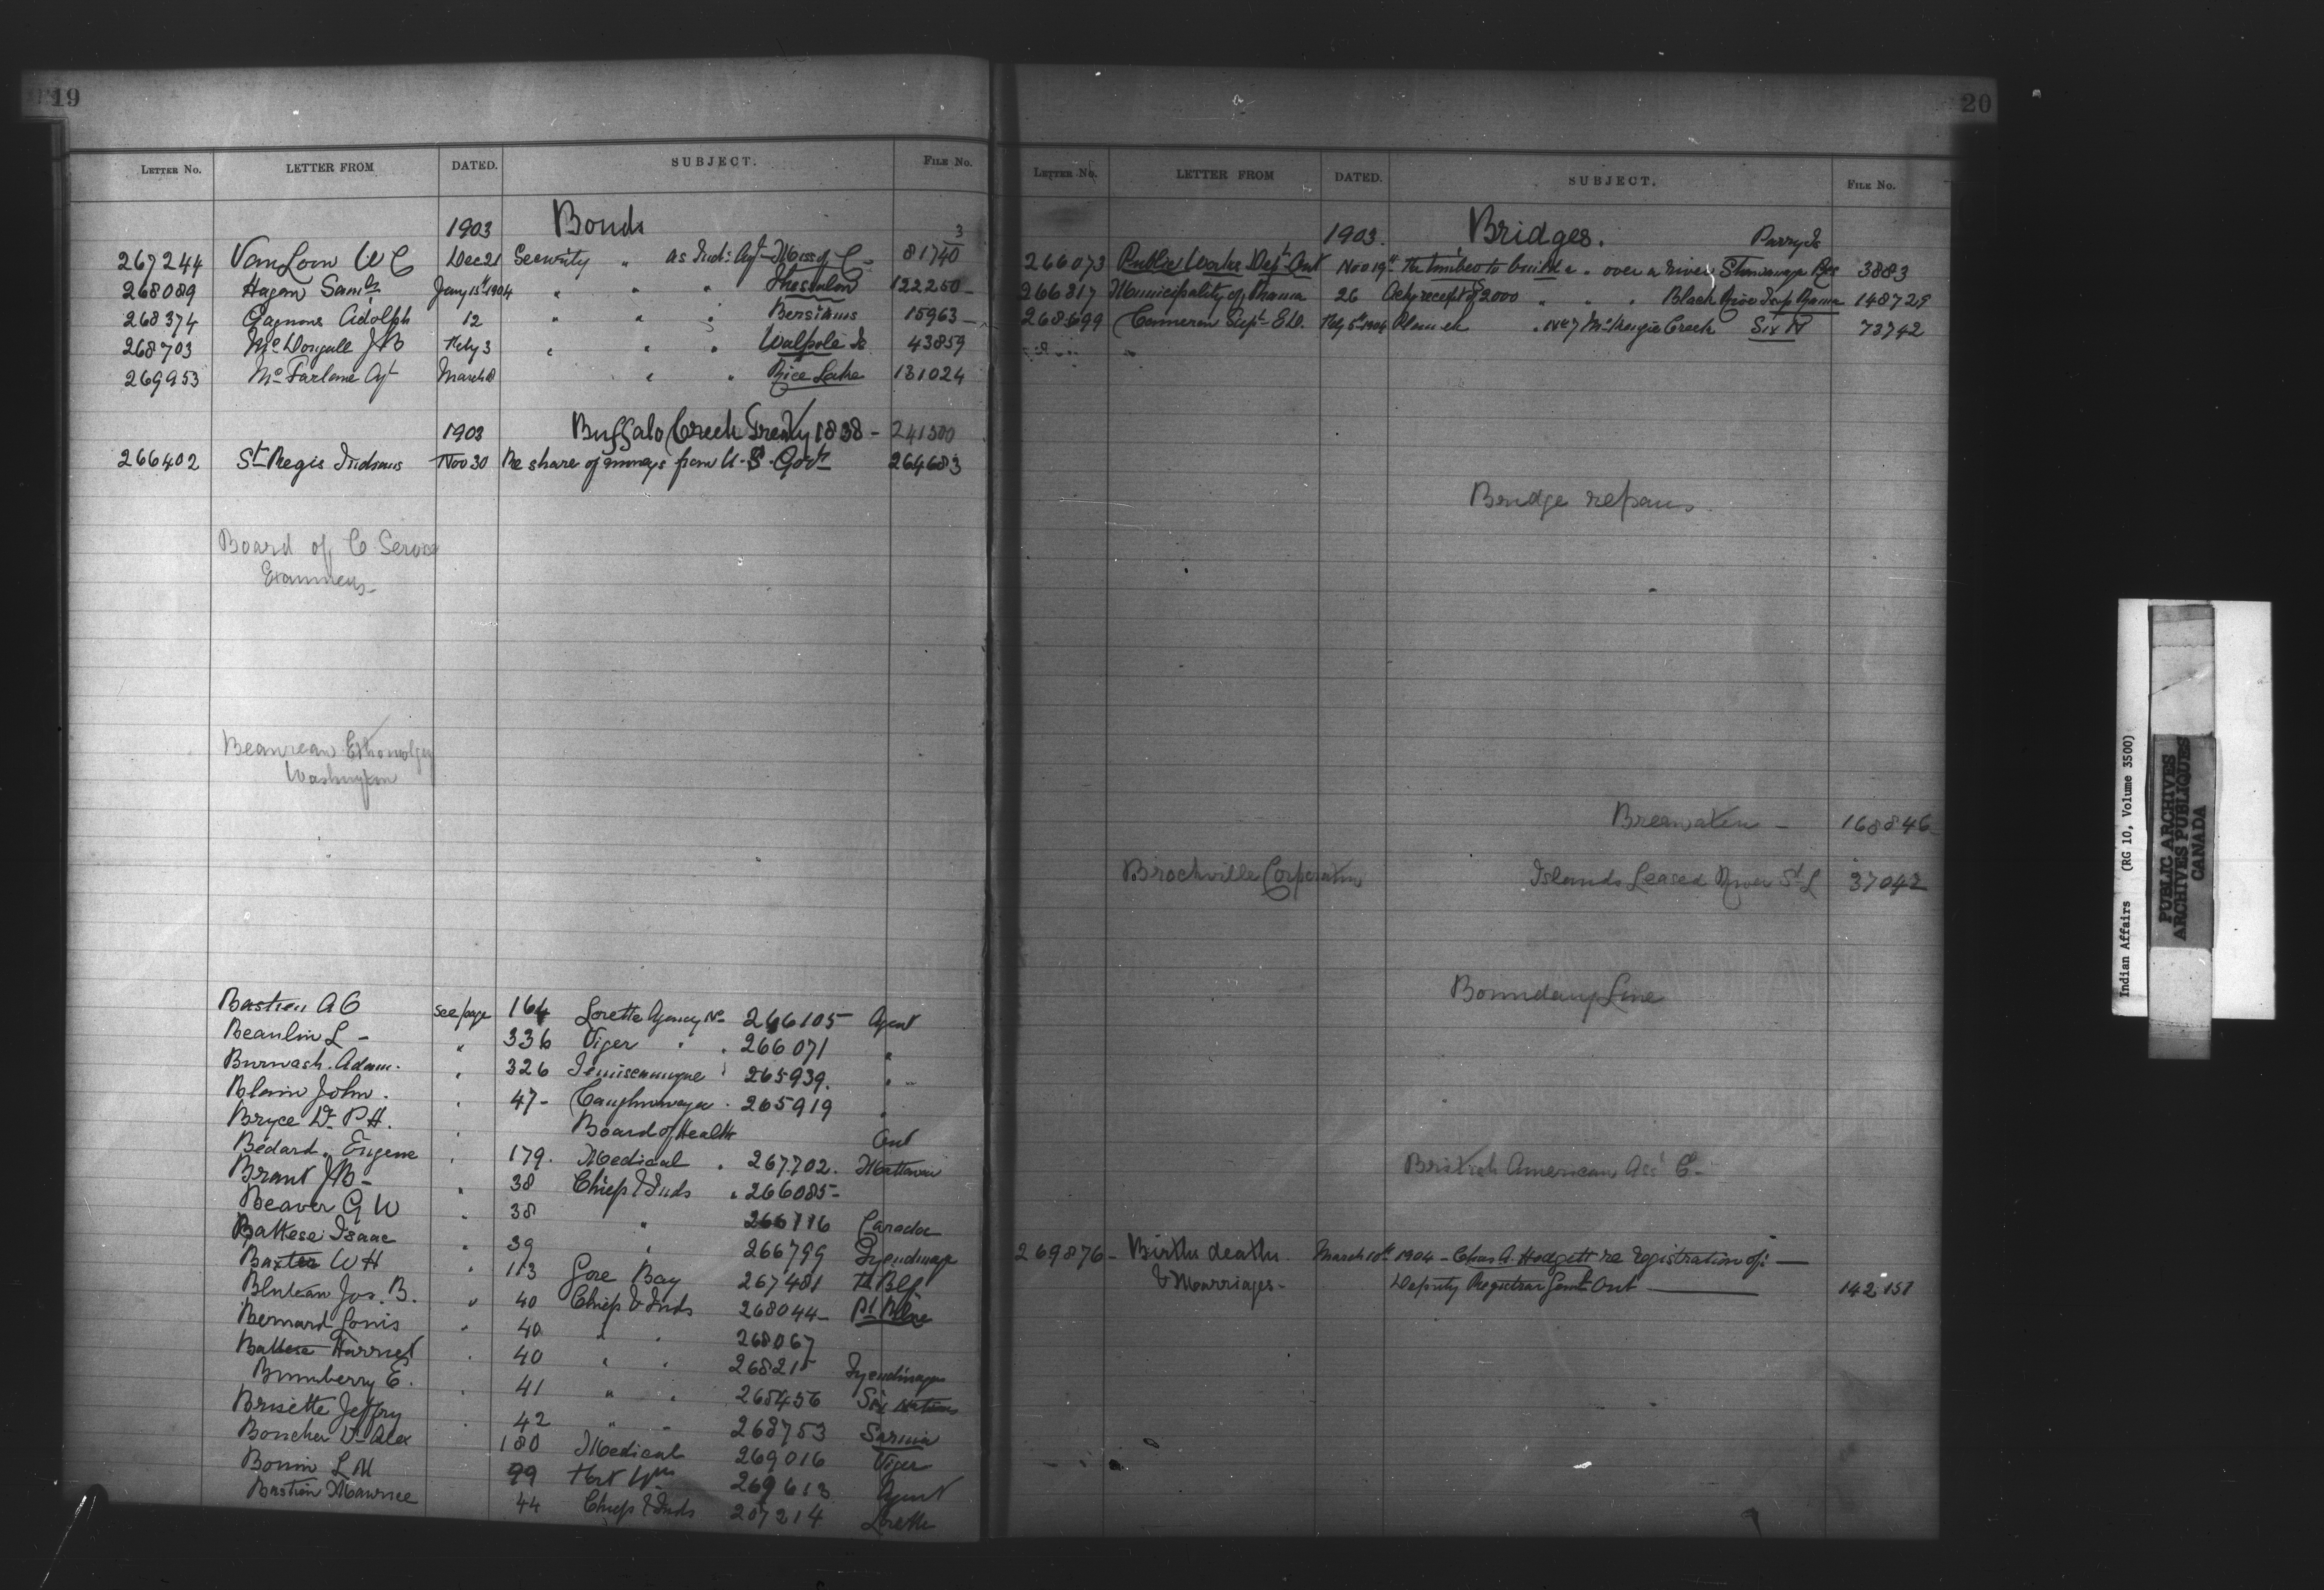 19
LETTER NO. LETTER FROM DATED. SUBJECT. FILE NO.
1903 Bonds 3
267244 VanLoon W C Dec 21 Security " as Ind: Agt Missg. C - 81740
268089 Hagan Saml Jany 15th 1904 " " " Thessalon 122250 -
268374 Gagnon Adolph 12 " " " Bersimis 15963 -
268703 McDougall J B Feby 3 " " " Walpole Is 43859
269953 McFarlane Agt March 8 " " Rice Lake 131024
1903 Buffalo Creek Treaty 1838 - 241500
266402 St Regis Indians Nov 30 Re share of moneys from U.S. Govt 264683
Board of C Service
Examiners -
Beaureau Ethonolgy
Washington
Bastien A O see page 164 Lorette Agency No 266105 Agent
Beaulin L - " 336 Viger " . 266071 "
Burwash. Adam. " 326 Temiscamingue 265939. "
Blain John. " 47 - Caughnawaga . 265919 "
Bryce Dr P H. " Board of Health Ont
Bedard. Eugene " 179. Medical . 267702. Mattawa
Brant J B - " 38 Chiefs & Inds . 266085 -
Beaver G W " 38 " 266776 Caradoc
Battese Isaac " 39 " 266799 Tyendinaga
Baxter W H " 113 Gore Bay 267481
Jos. B. " 40 Chiefs & Inds 268044 -
Bernard Louis " 40 " " 268067
Battese Harriet " 40 " " 26821 Tyendinaga
Bumberry E. " 41 " " 268456 Six Nations
Brisette Jeffry " 42 " - 268753 Sarnia
Boucher Dr Alex 180 Medical 269016 Viger
Bonin L M 99 Fort Wm 269613 Agent
Bastien Maurice 44 Chiefs & Inds 267214 Lorette
20
LETTER NO. LETTER FROM DATED. SUBJECT. FILE NO.
1903. Bridges. Parry Is
266073 Public Works Dept Ont Nov 19th Re timber to build a " over a river Shawanaga Res 3883
266817 Municipality of Rama 26 Ackg receipt of 2000 " " " Black River Twp Rama 148729
268699 Cameron Supt E D. Feby 5th 1904 Plan ck " No 7 McKenzie Creek Six N 73742
Bridge repairs
Breawaten - 168846 -
Brockville Corporation Islands Leased River St L 37042
Boundary Line
British American Ass' C -
269876 - Births deaths March 10th 1904 - Chas A. Hodgett re registration of: -
& Marriages - Deputy Registrar Genl Ont 142151
Indian Affairs (RG 10, Volume 3500)
PUBLIC ARCHIVES
ARCHIVES PUBLIQUES
CANADA